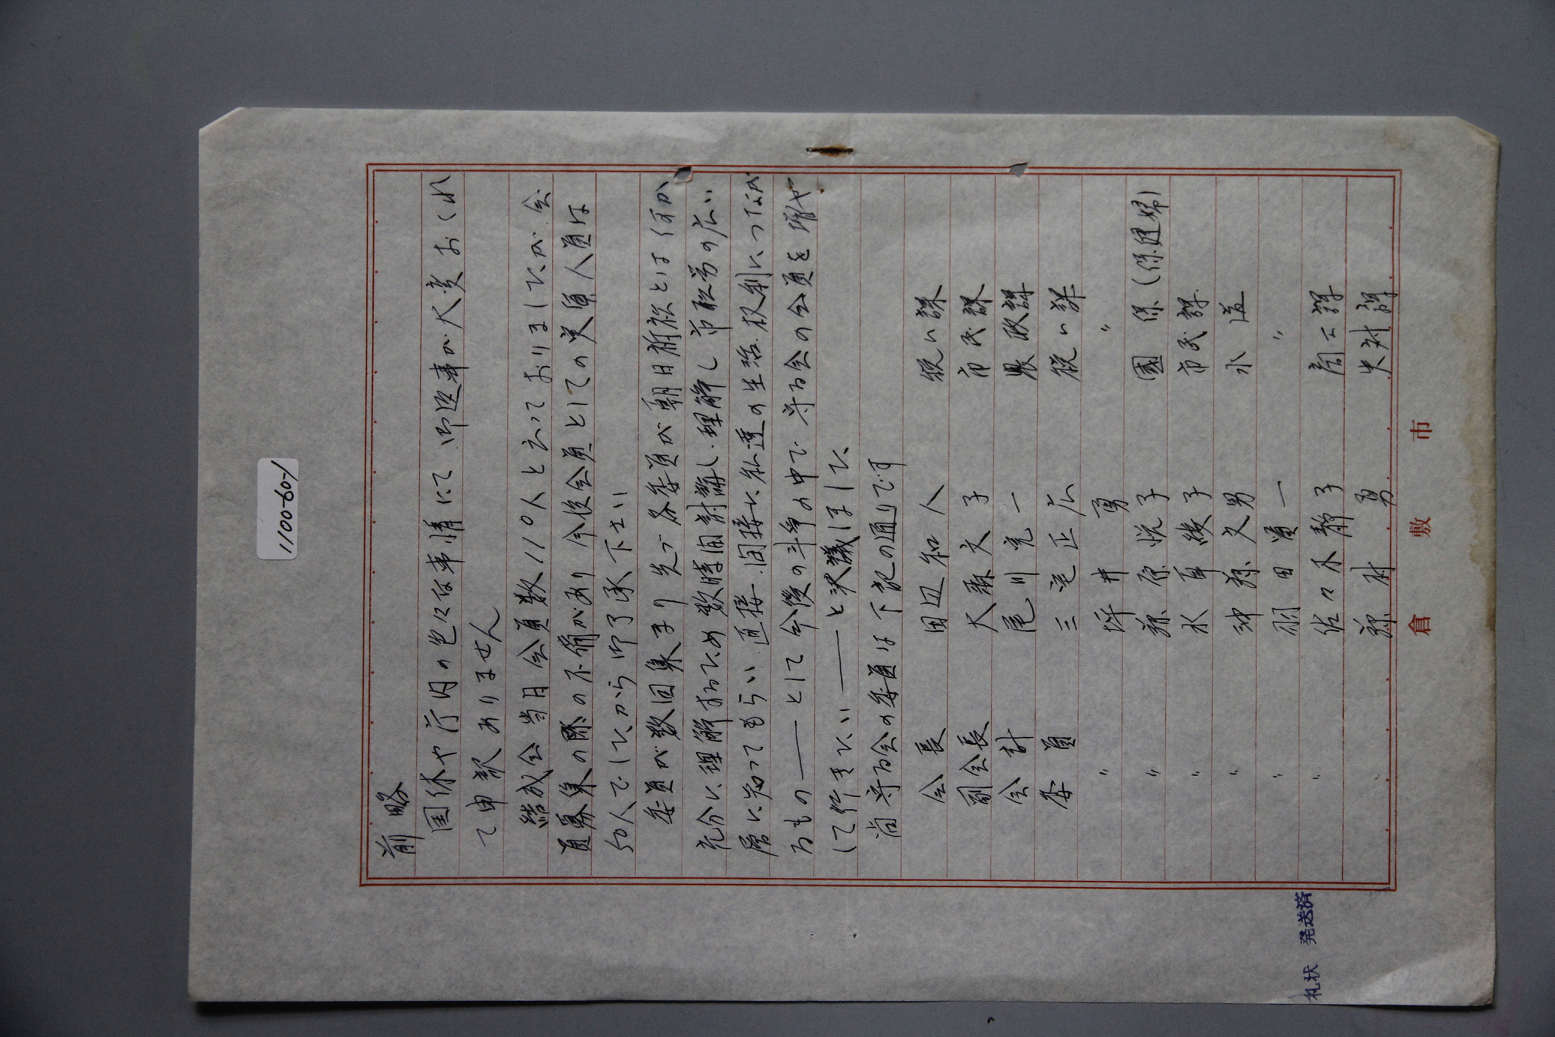 1100-607
前略
国体や庁内の色々な事情にて、御返事が大変おくれ
て申訳ありません
結成会当日会員数110人と云っておりましたが会
員募集の際の不備があり今後会員としての実質人員は
50人でしたから御了承下さい
委員が数回集まり先づ各委員が朝日訴訟とは何か
充分に理解するため数時間討論し、理解し市職労の広い
層に知ってもらい直接、間接に私達の生活、权利につなが
るもの——として今後の斗争の中で、守る会の会員を増や
して行きたい——と決議しました
尚守る会の委員は下記の通りです
会長 田辺和人 税ム課
副会長 大森文子 市民課
会計 尾川完一 農政課
委員 三宅正広 税ム課
〃 坪井勇 〃
〃 藤原悦子 国保(保健婦)
〃 水耳綾子 市民課
〃 神藤文男 水道
〃 羽田勇一 〃
〃 佐々木静子 商工課
〃 藤村勇 失対課
倉敷市
礼状 発送済